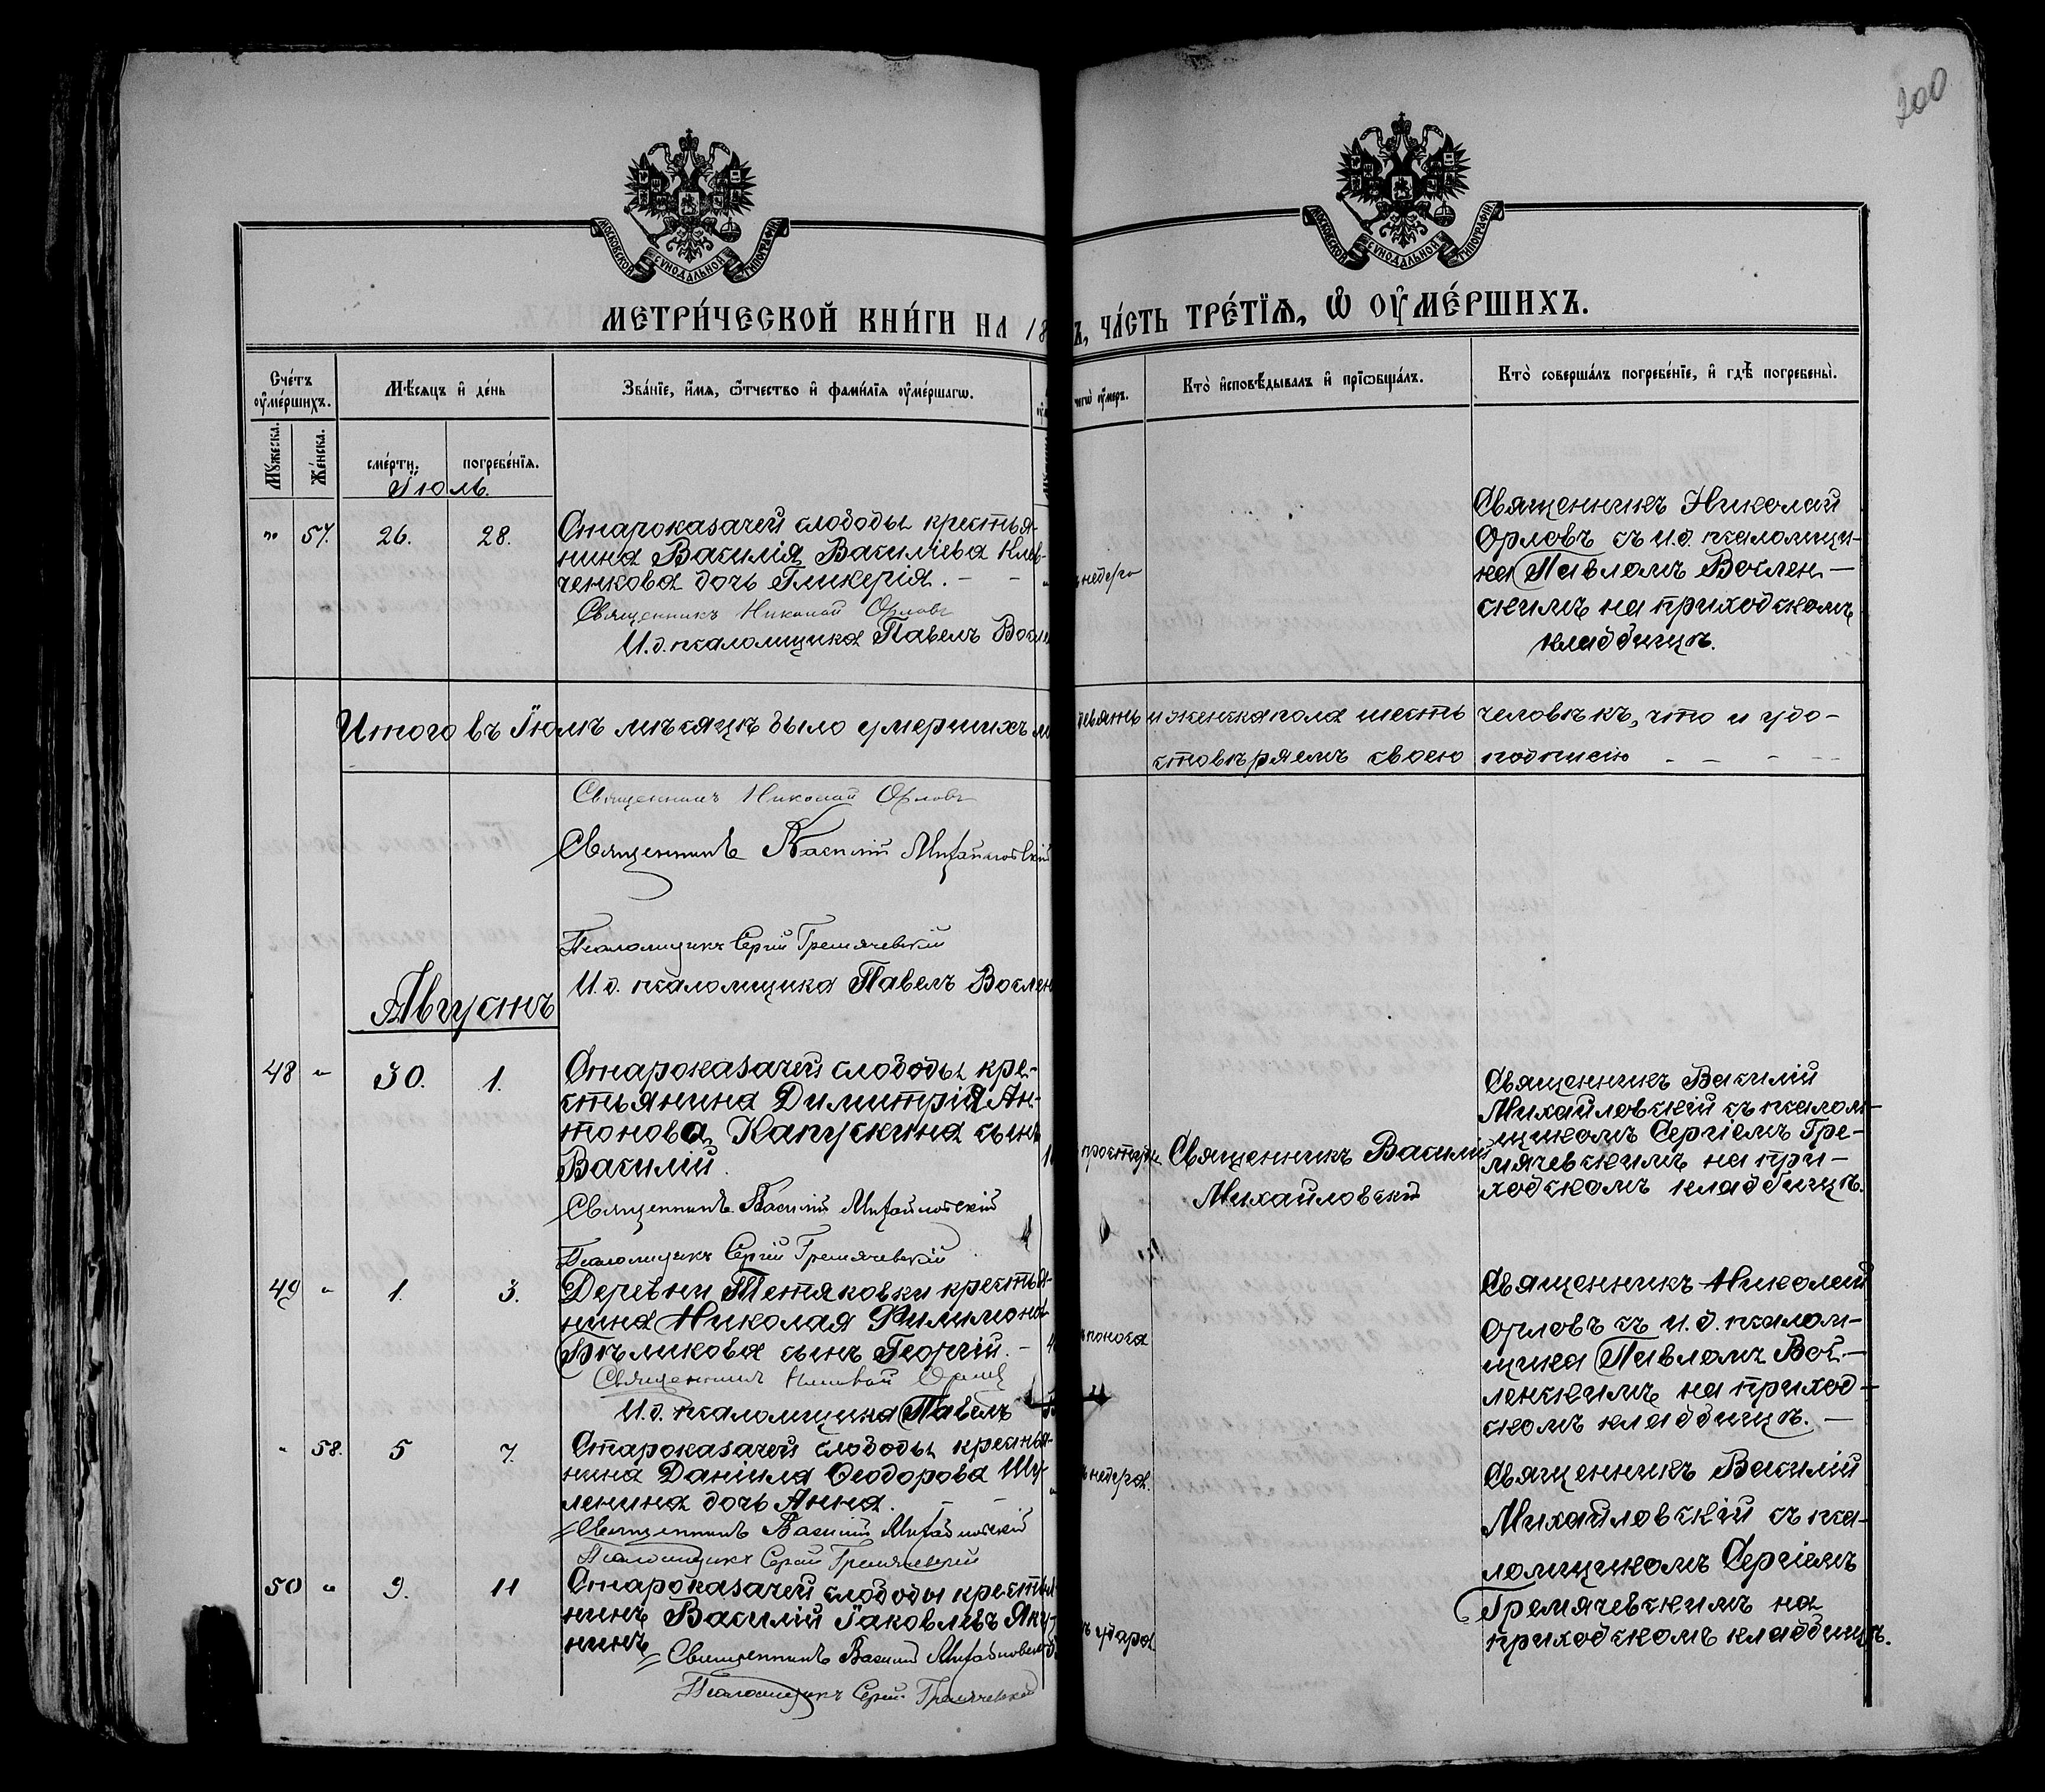 200
МОСКОВСКОЙ СУНОДАЛЬНОЙ ТИПОГРАФІИ
МОСКОВСКОЙ СУНОДАЛЬНОЙ ТИПОГРАФІИ
МЕТРИ́ЧЕСКОЙ КНИ́ГИ НА 18
Ъ, ЧА́СТЬ ТРЕ́ТЇѦ, Ѡ҆ ОУ҆МЕ́РШИХЪ.
Сче́тъ оу҆ме́ршихъ.
Мꙋ́жеска.
Же́нска.
Мѣ́сяцъ и҆ де́нь
сме́рти.
погребе́нїѧ.
Зва́нїе, и҆́мѧ, ѻ҆́тчество и҆ фами́лїѧ оу҆ме́ршагѡ.
чегѡ̀ оу҆́меръ.
Кто̀ и҆сповѣ́дывалъ и҆ прїѡбща́лъ.
Кто̀ соверша́лъ погребе́нїе, и҆ гдѣ̀ погребены̀.
Іюль.
" 57. 26. 28.
Староказачей слободы крестья-
нина Василія Васильева Клев-
ченкова дочь Гликерія. - -
Священникъ Николай Орловъ
И. д. псаломщика Павелъ Восле
недеро
Священникъ Николай
Орловъ съ и. д. псаломщи-
ка Павломъ Вослен-
скимъ на приходскомъ
кладбищѣ.
Итого въ Іюлѣ мѣсяцѣ было умершихъ м
девять и женска пола шесть человѣкъ, что и удо-
стовѣряемъ своею подписію - - - -
Священникъ Николай Орловъ
Священникъ Василій Михайловскій
Псаломщикъ Сергій Гремячевскій
И. д. псаломщика Павелъ Вослен
Августъ
48 " 30. 1.
Староказачей слободы кре-
стьянина Димитрія Ан-
тонова Капускина сынъ
Василій.
Священникъ Василій Михайловскій
Псаломщикъ Сергій Гремячевскій
простуды
Священникъ Василій
Михайловскій
Священникъ Василій
Михайловскій съ псалом-
щикомъ Сергіемъ Гре-
мячевскимъ на при-
ходскомъ кладбищѣ.
49 " 1. 3.
Деревни Тетяковки крестья-
нина Николая Филимонова
Бѣликова сынъ Георгій. -
Священникъ Николай Орловъ
И. д. псаломщика Павелъ
поноса
Священникъ Николай
Орловъ съ и. д. псалом-
щика Павломъ Вос-
ленскимъ на приход-
скомъ кладбищѣ. -
" 58. 5 7.
Староказачей слободы крестья-
нина Даніила Ѳеодорова Шу-
ленина дочь Анна. - -
Священникъ Василій Михайловскій
Псаломщикъ Сергій Гремячевскій
недера.
Священникъ Василій
Михайловскій съ пса-
ломщикомъ Сергіемъ
Гремячевскимъ на
приходскомъ кладбищѣ.
50 " 9. 11
Староказачей слободы крестья-
нинъ Василій Іаковлевъ Яку-
нинъ
Священникъ Василій Михайловскій
Псаломщикъ Сергій Гремячевскій
удара